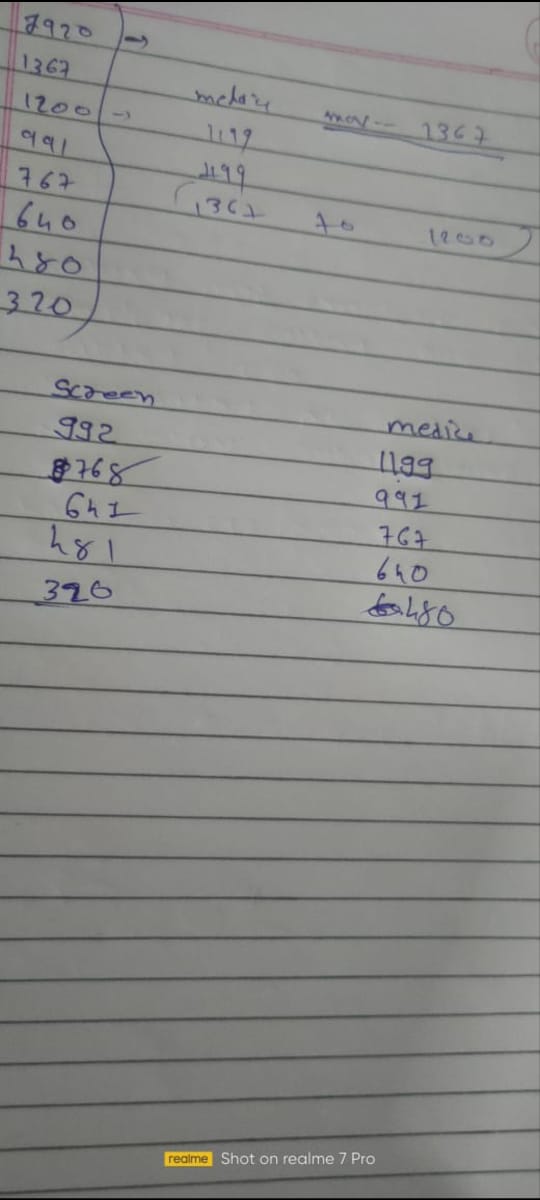 1920
1367
1200
991
767
640
480
320
medize
max-- 1367
1199
1199
(1367 to 1200)
Screen
992
768
641
481
320
medize
1199
991
767
640
480
realme Shot on realme 7 Pro